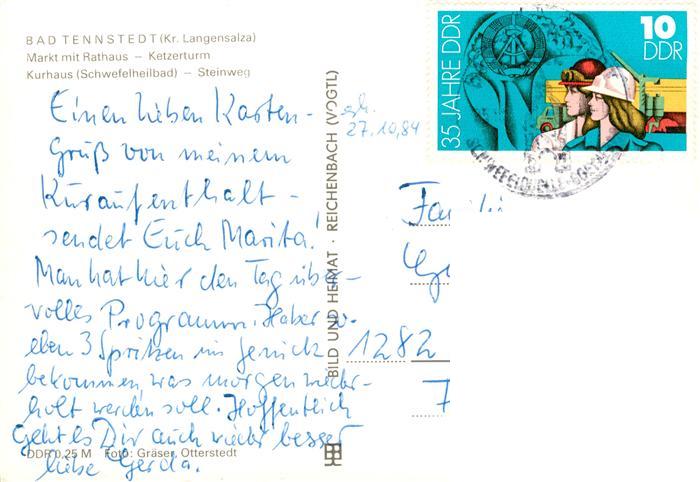 BAD TENNSTEDT (Kr. Langensalza)
Markt mit Rathaus – Ketzerturm
Kurhaus (Schwefelheilbad) – Steinweg
Einen lieben Karten-
gruß von meinem
Kuraufenthalt -
sendet Euch Marita!
Man hat hier den Tag über
volles Programm. Habe so-
eben 3 Spritzen ins Genick
bekommen, was morgen wieder-
holt werden soll. Hoffentlich
geht es Dir auch wieder besser
liebe Gerda.
DDR 0,25 M Foto: Gräser, Otterstedt
BILD UND HEIMAT · REICHENBACH (VOGTL)
27.10.84
35 JAHRE DDR
10
DDR
1282
7